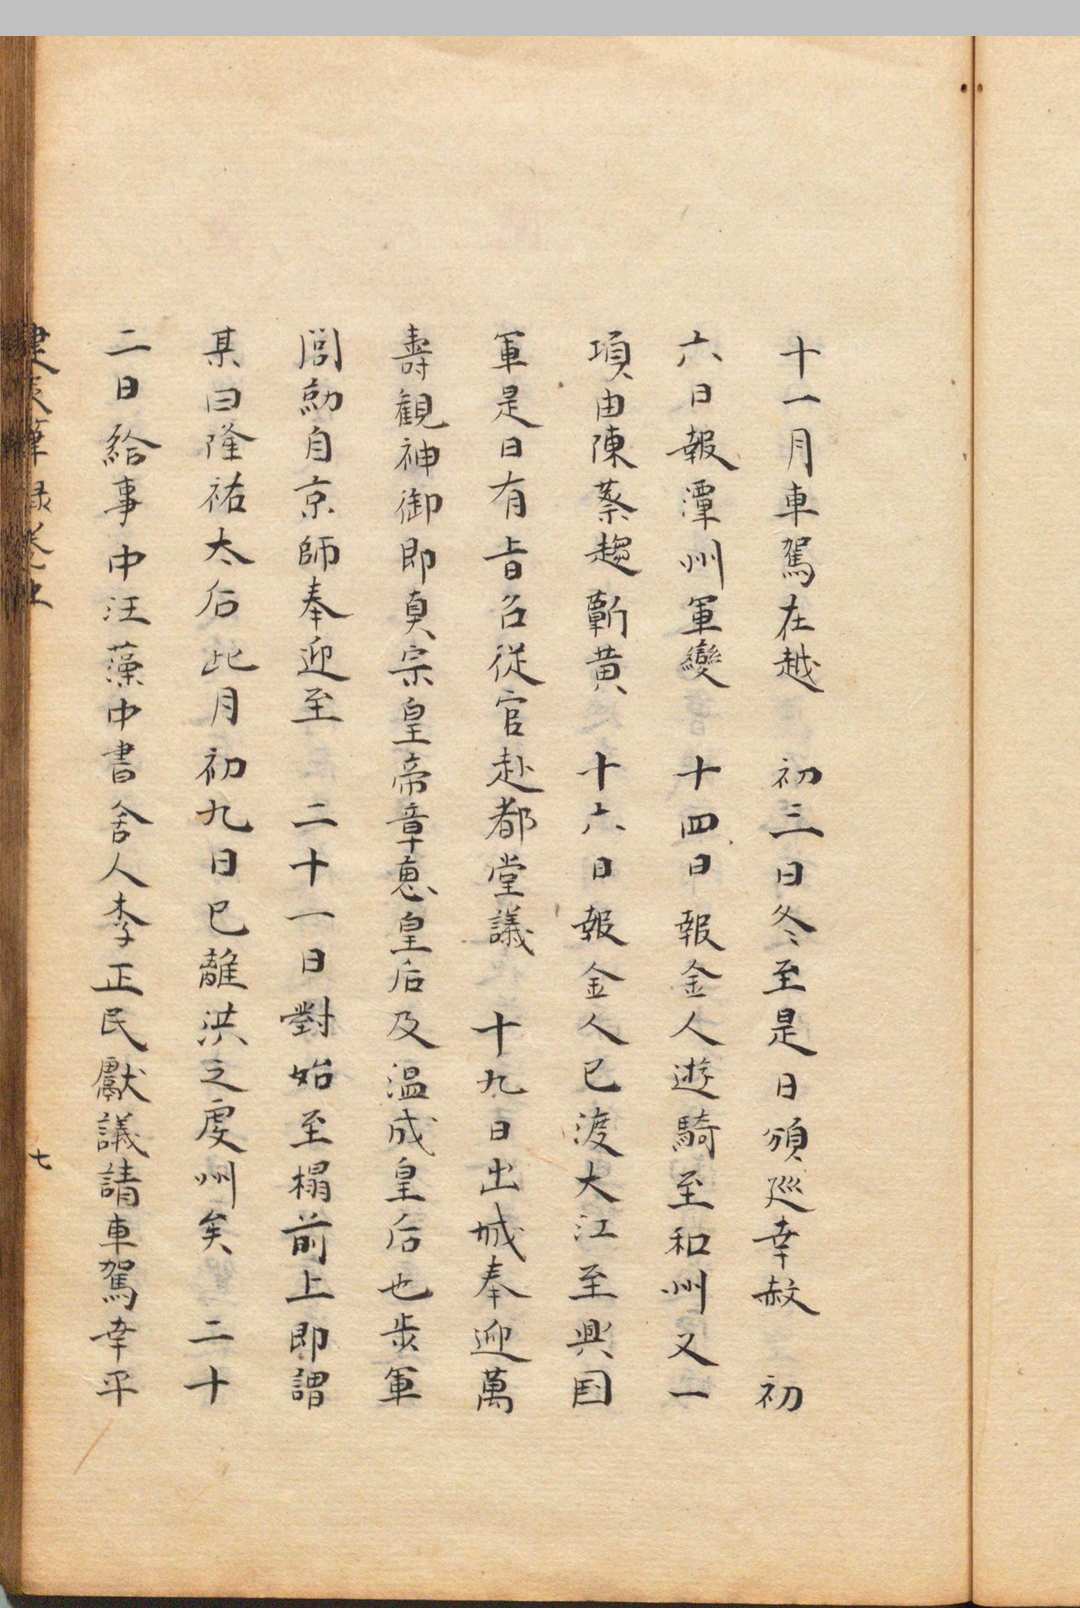 十一月車駕在越　初三日冬至是日頒廵幸赦　初
六日報潭州軍變　十四日報金人遊騎至和州又一
項由陳蔡趨蘄黄　十六日報金人已渡大江至興国
軍是日有旨召從官赴都堂議　十九日出城奉迎萬
壽観神御即真宗皇帝章恵皇后及温成皇后也步軍
閭勍自京師奉迎至　二十一日對始至榻前上即謂
某曰隆祐太后此月初九日已離洪之虔州矣　二十
二日給事中汪藻中書舍人李正民獻議請車駕幸平
建炎筆録卷上
七